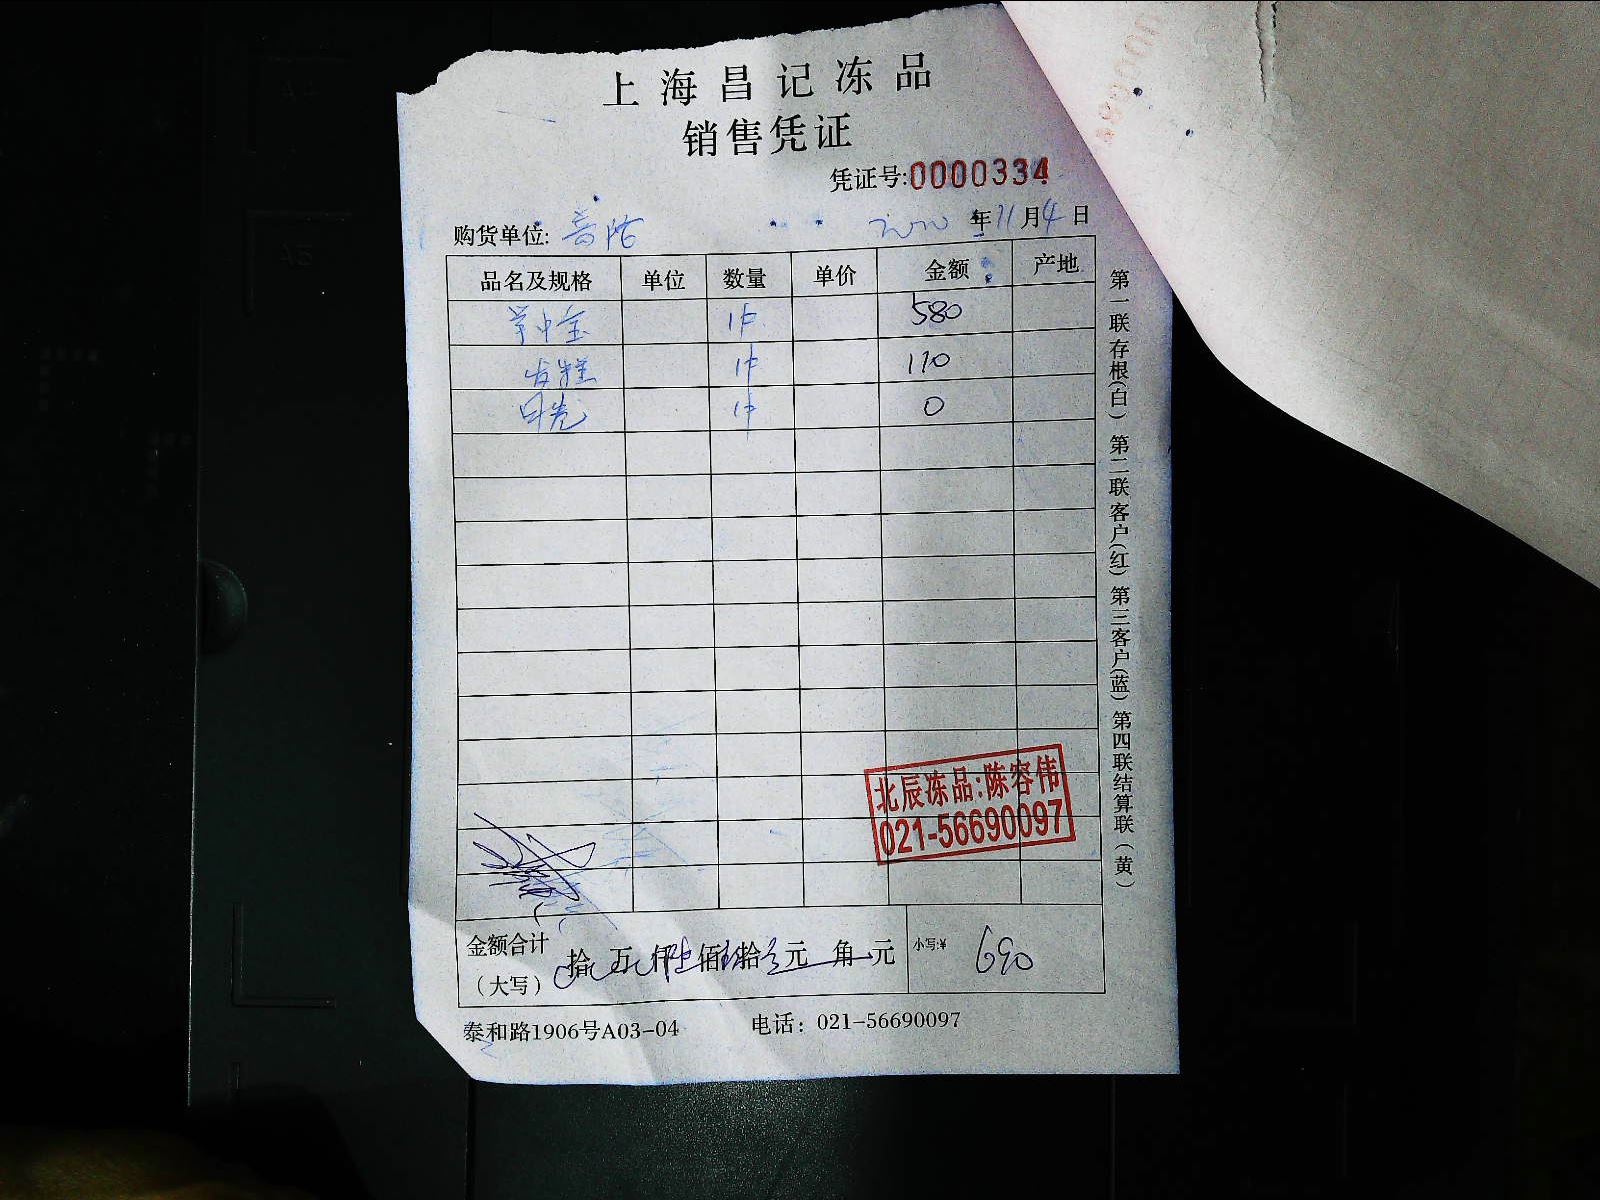 上海昌记冻品
销售凭证
凭证号:0000334
购货单位: 2020年11月4日
品名及规格 单位 数量 单价 金额 产地
掌中宝 1件 580
发糕 1件 110
1件 0
北辰冻品:陈容伟
021-56690097
金额合计(大写) 拾 万 仟 佰 拾 元 角 元 小写:¥ 690
泰和路1906号A03-04 电话: 021-56690097
第一联存根(白) 第二联客户(红) 第三客户(蓝) 第四联结算联(黄)